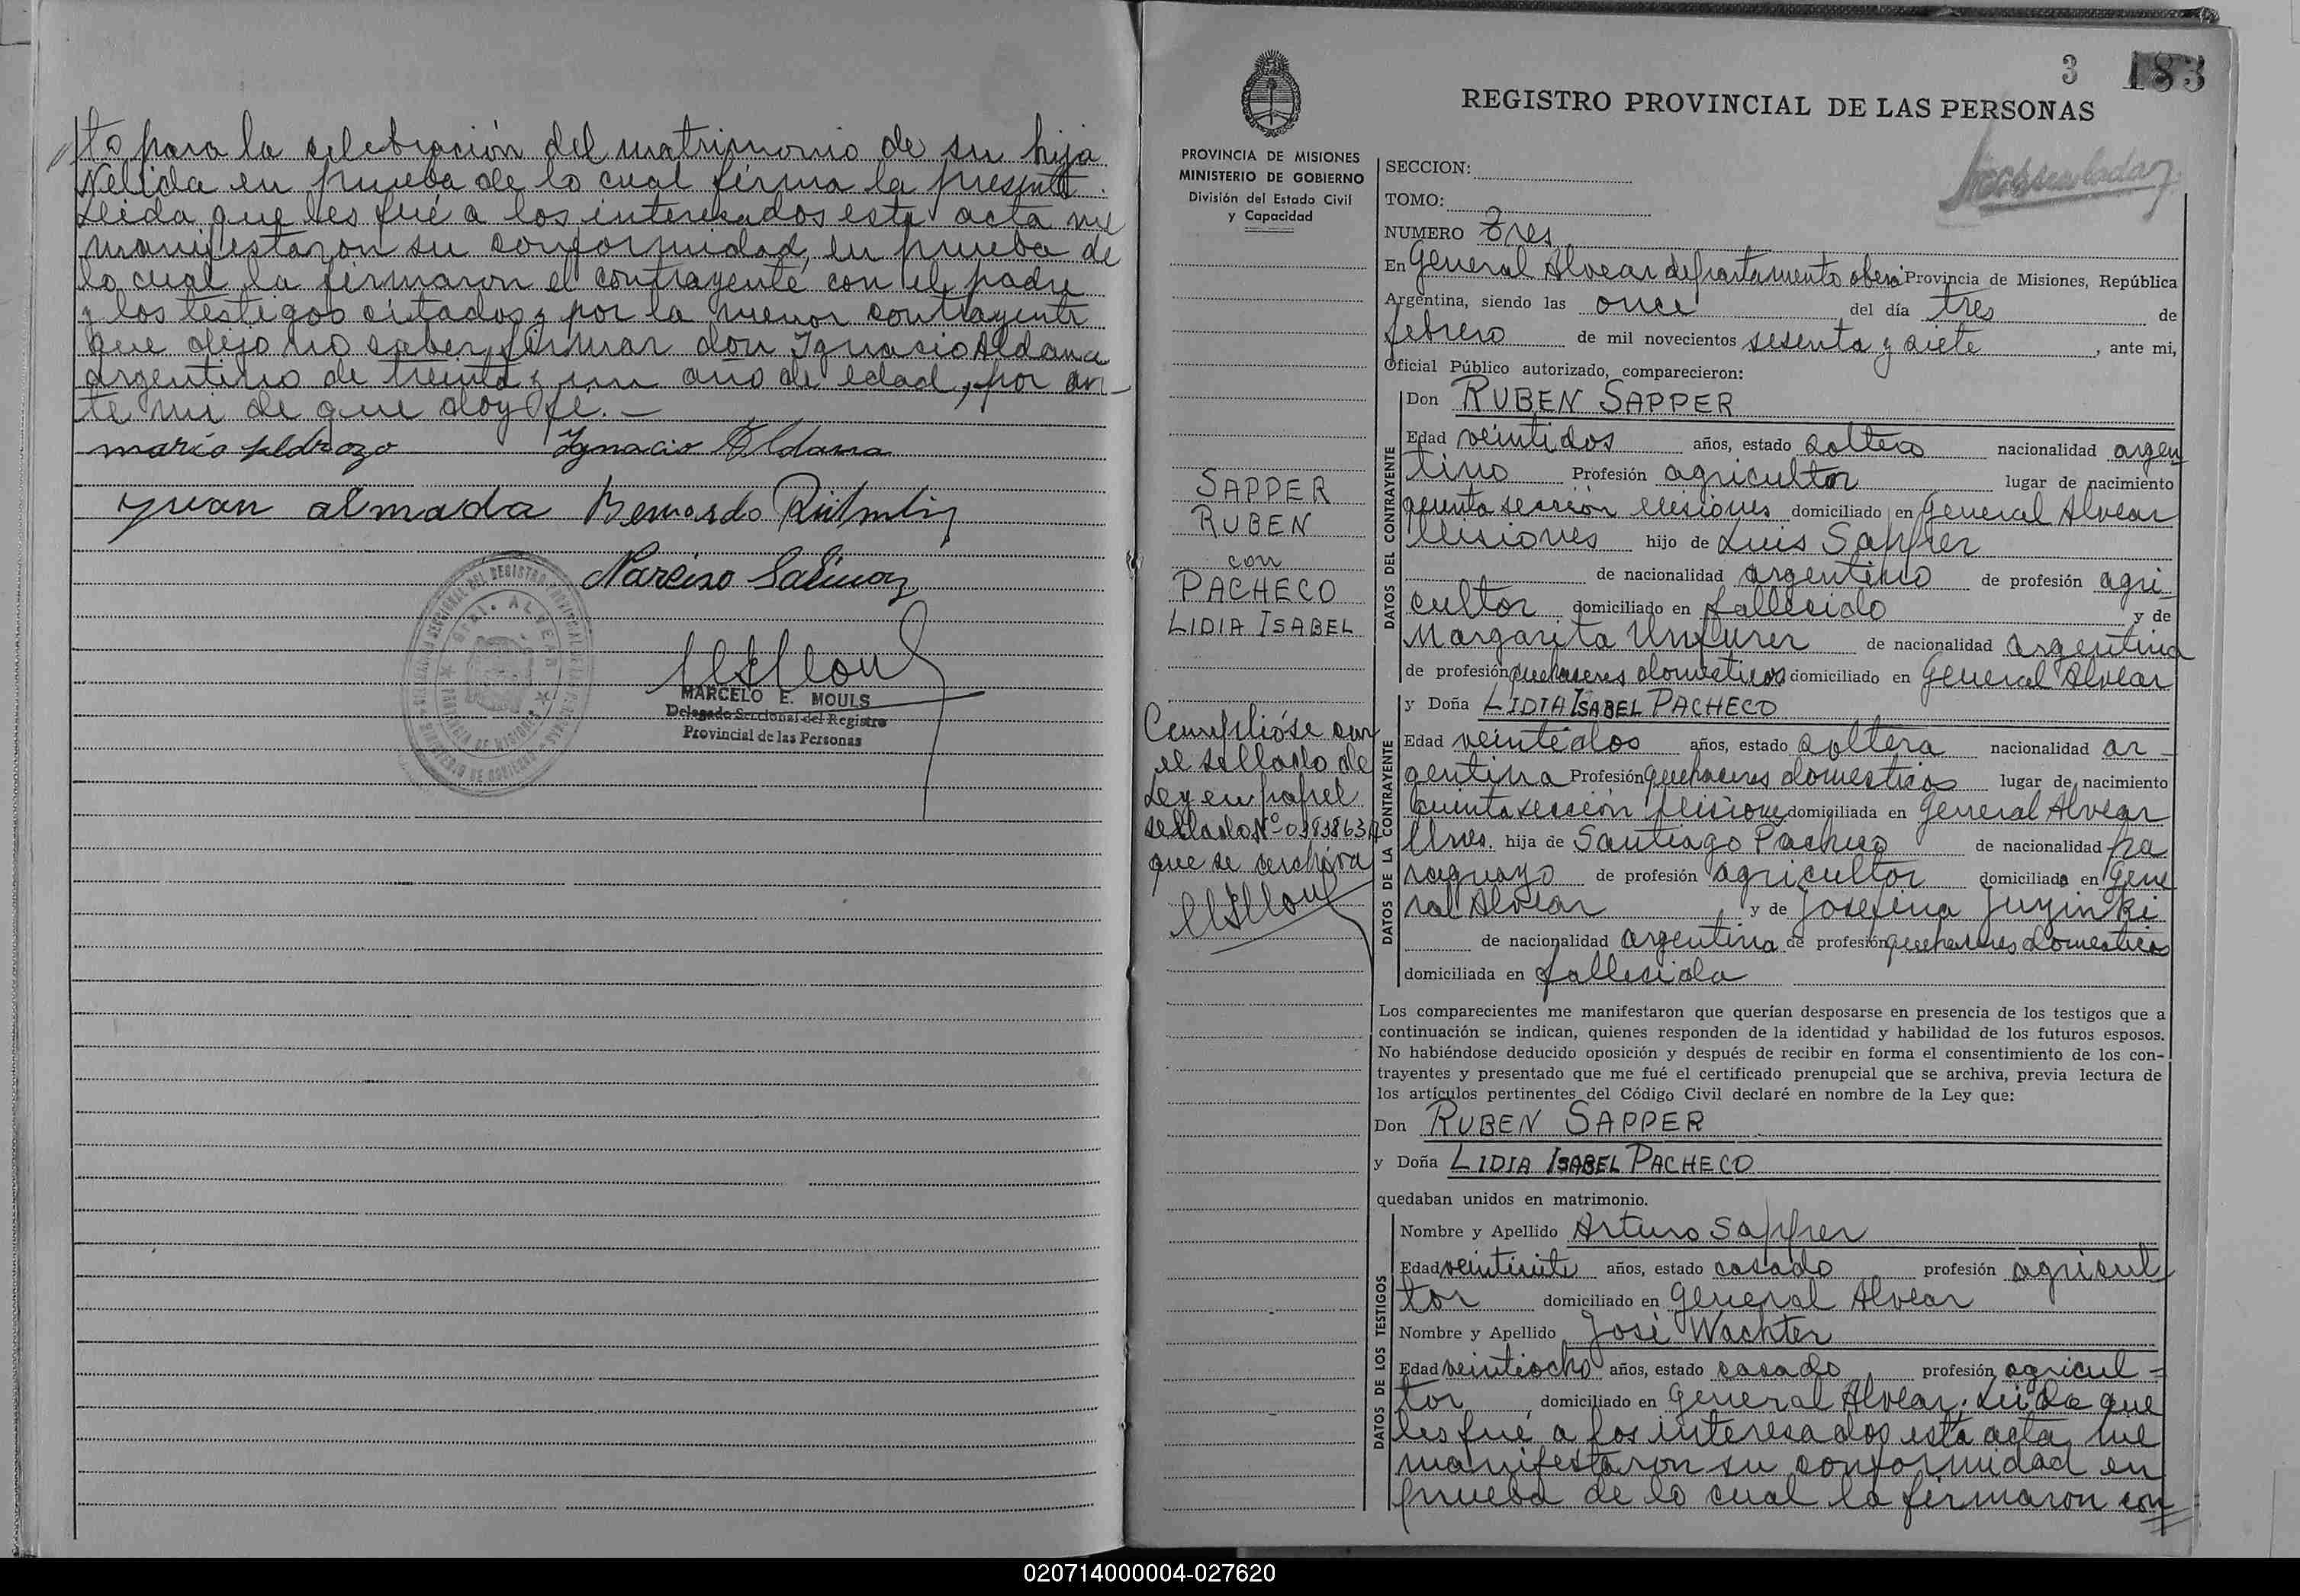 to para la celebración del matrimonio de su hija
Nelida en prueba de lo cual firma la presente.
Leida que les fué a los interesados esta acta me
manifestaron su conformidad, en prueba de
lo cual la firmaron el contrayente con el padre
y los testigos citados y por la menor contrayente
que dijo no saber firmar don Ignacio Aldana
argentino de treinta y un año de edad, por an-
te mi de que doy fé.—
mario pedrozo Ignacio Aldana
Juan almada Bernardo
Narciso
GRAL. ALVEAR
PROVINCIA DE MISIONES
MARCELO E. MOULS
Delegado Seccional del Registro
Provincial de las Personas
3 183
REGISTRO PROVINCIAL DE LAS PERSONAS
PROVINCIA DE MISIONES
MINISTERIO DE GOBIERNO
División del Estado Civil
y Capacidad
SAPPER
RUBEN
con
PACHECO
LIDIA ISABEL
Cumplióse con
el sellado de
Ley en papel
sellado Nº
que se archiva
SECCION:
TOMO:
NUMERO Tres
En General Alvear departamento obera Provincia de Misiones, República
Argentina, siendo las once del día tres de
febrero de mil novecientos sesenta y siete, ante mi,
Oficial Público autorizado, comparecieron:
DATOS DEL CONTRAYENTE
Don RUBEN SAPPER
Edad veintidos años, estado soltero nacionalidad argen
tino Profesión agricultor lugar de nacimiento
quinta sección Misiones domiciliado en General Alvear
Misiones hijo de Luis Sapper
de nacionalidad argentino de profesión agri-
cultor domiciliado en fallecido y de
Margarita Unfurer de nacionalidad argentina
de profesión quehaceres domesticos domiciliado en General Alvear
DATOS DE LA CONTRAYENTE
y Doña LIDIA ISABEL PACHECO
Edad veintidos años, estado soltera nacionalidad ar-
gentina Profesión quehaceres domesticos lugar de nacimiento
quinta sección Misiones domiciliada en General Alvear
Mnes. hija de Santiago Pacheco de nacionalidad pa
raguayo de profesión agricultor domiciliada en Gene
ral Alvear y de Josefina
de nacionalidad argentina de profesión quehaceres domesticos
domiciliada en fallecida
Los comparecientes me manifestaron que querían desposarse en presencia de los testigos que a
continuación se indican, quienes responden de la identidad y habilidad de los futuros esposos.
No habiéndose deducido oposición y después de recibir en forma el consentimiento de los con-
trayentes y presentado que me fué el certificado prenupcial que se archiva, previa lectura de
los artículos pertinentes del Código Civil declaré en nombre de la Ley que:
Don RUBEN SAPPER
y Doña LIDIA ISABEL PACHECO
quedaban unidos en matrimonio.
DATOS DE LOS TESTIGOS
Nombre y Apellido Arturo Sapper
Edad veintisiete años, estado casado profesión agricul
tor domiciliado en General Alvear
Nombre y Apellido José Wachter
Edad veintiocho años, estado casado profesión agricul-
tor domiciliado en General Alvear. Leida que
les fué a los interesados esta acta, me
manifestaron su conformidad en
prueba de lo cual la firmaron con
020714000004-027620